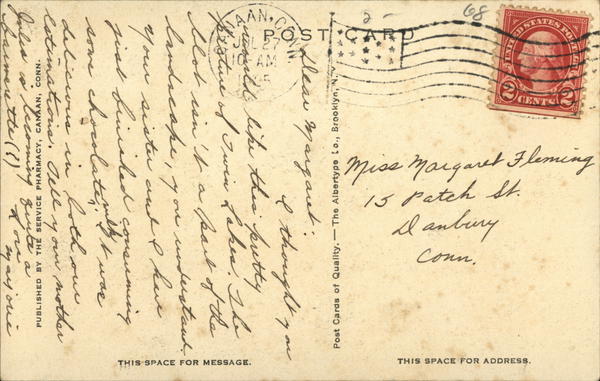 POST CARD
CANAAN, CONN.
JUL 27
AM
UNITED STATES POSTAGE
2 CENTS 2
68
Dear Margaret:
I thought you
would like this pretty
picture of Twin Lakes. The
blot isn't a part of the
landscape, you understand.
Your sister and I have
just finished consuming
some chocolate It was
delicious in both our
estimations. Tell your mother
is becoming quite a
farmerette (?) Love
Marjorie
PUBLISHED BY THE SERVICE PHARMACY, CANAAN, CONN.
Post Cards of Quality. — The Albertype Co., Brooklyn, N.
Miss Margaret Fleming
15 Patch St.
Danbury
Conn.
THIS SPACE FOR MESSAGE.
THIS SPACE FOR ADDRESS.